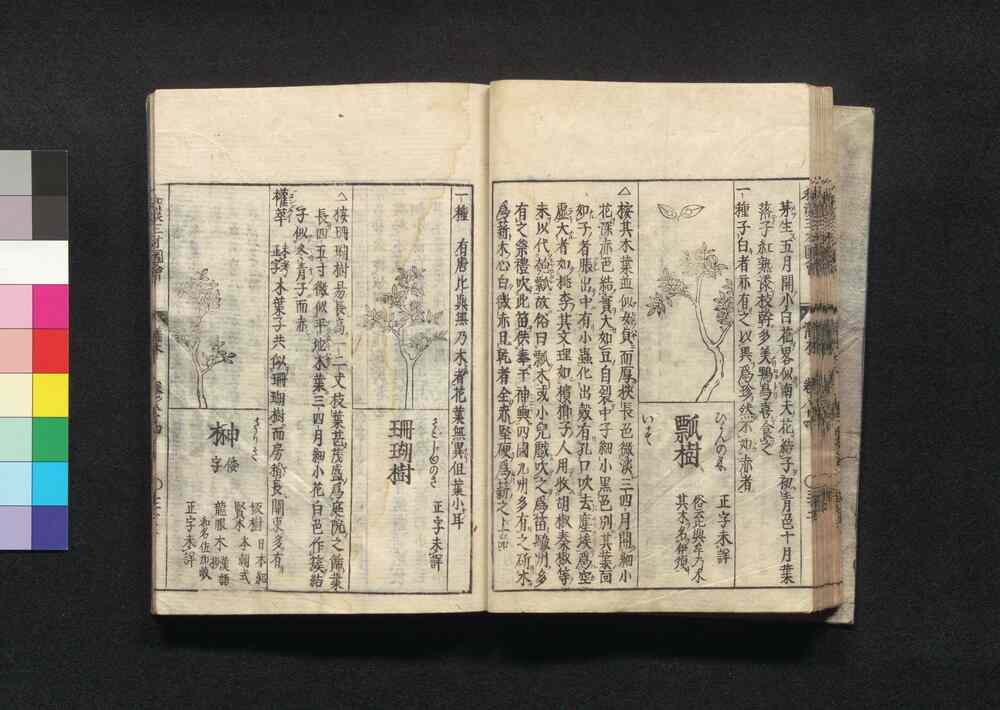 芽生五月開小白花畧似南天花結子初青邑十月葉
落子紅熟滿枝幹多美鴨鳥喜食之
一種子白者亦有之以異爲珍然不如赤者
瓢樹
ひよんのき
いす
正字未詳
俗云比與牟乃木
其木名伊須
△按其木葉並似女貞而厚狹長色微淡三四月開細小
花深赤色結實大如豆自裂中子細小黒色別其葉面
如子者脹出中有小蟲化出殼有孔口吹去塵埃爲空
虛大者如桃李其文理如檳榔子人用收胡椒秦椒等
末以代匏瓢故俗曰瓢木或小兒戲吹之爲笛駿州多
有之祭禮吹此笛供奉于神輿四國九州多有之斫木
爲薪木心白微赤且乾者全赤堅硬爲薪之上品
一種 有唐比與無乃木者花葉無異但葉小耳
珊瑚樹
さんごのき
正字未詳
△按珊瑚樹易長高一二丈枝葉甚茂盛爲庭院之飾葉
長四五寸微似平地木葉三四月細小花白色作簇結
子似冬青子而赤
權萃 木葉子共似珊瑚樹而房檐長關東多有
榊
さかき
倭字
坂樹 日本紀
賢木 本朝式
龍眼木 漢語抄
和名佐加木
正字未詳